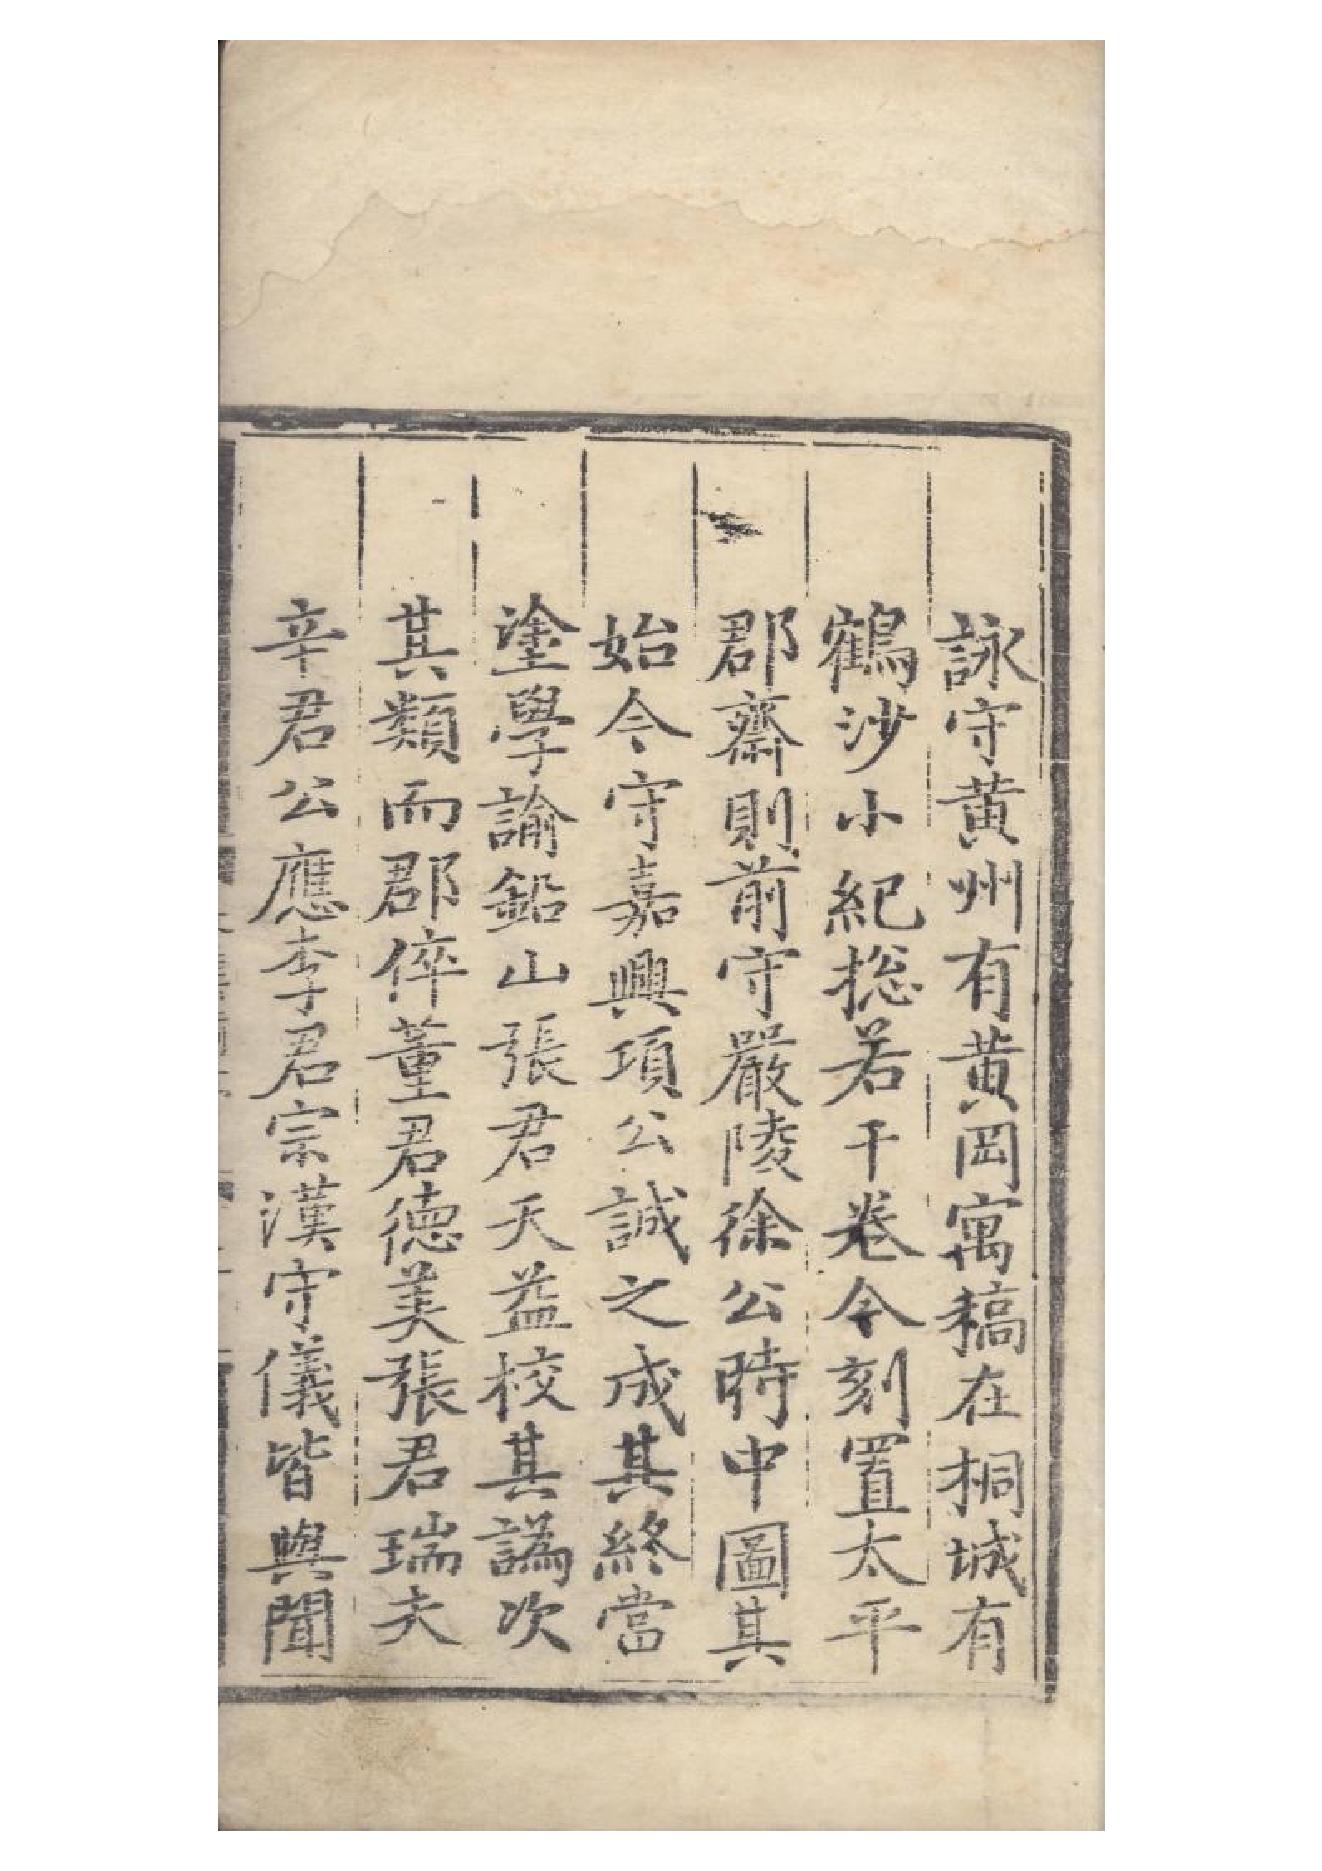 詠守黄州有黄岡寓稿在桐城有
鶴沙小紀揔若干卷今刻置太平
郡齋則前守嚴陵徐公時中圖其
始今守嘉興項公誠之成其終當
塗學諭鉛山張君天益校其譌次
其類而郡倅董君德美張君瑞夫
辛君公應李君宗漢守儀皆與聞